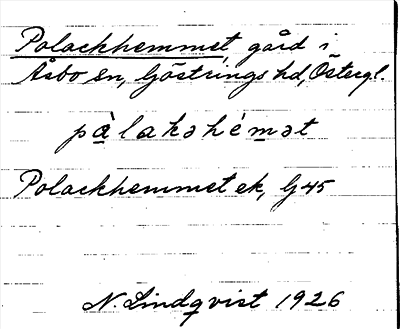 Polackhemmet, gård i
Åsbo sn, Göstrings hd, Östergl.
pàlakəhémət
Polackhemmet ek, G45
N. Lindqvist 1926